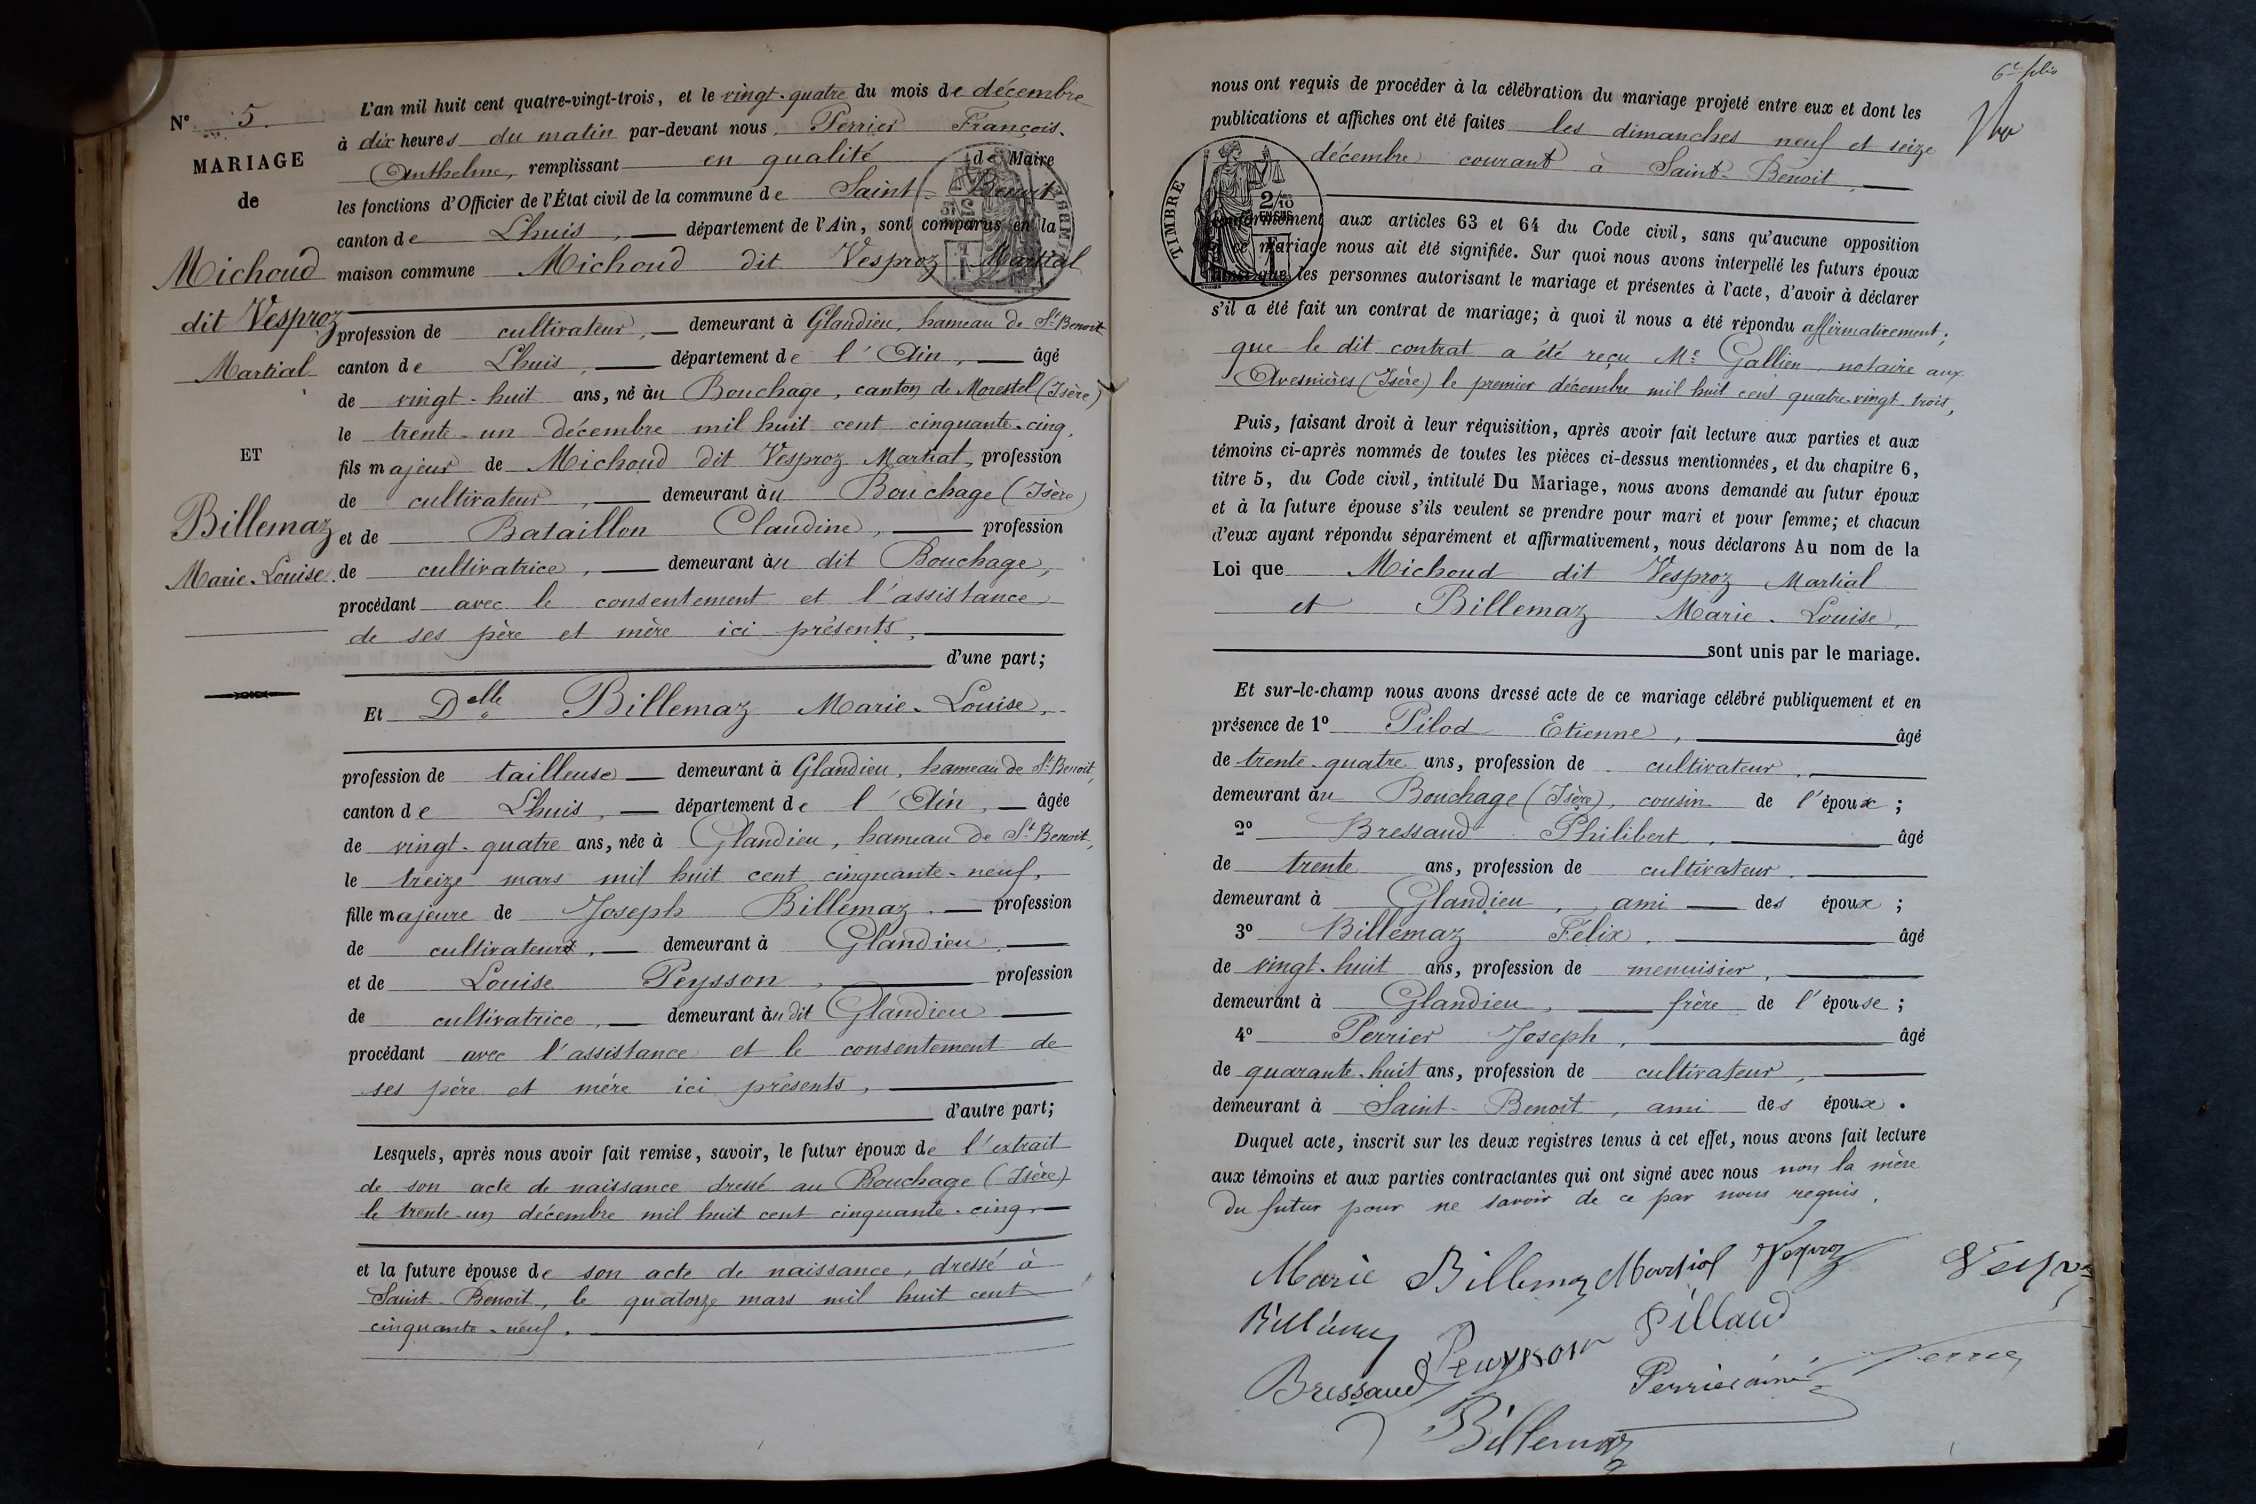 N° 5.
MARIAGE
de
Michoud
dit Vesproz
Martial
ET
Billemaz
Marie-Louise.
L'an mil huit cent quatre-vingt-trois, et le vingt-quatre du mois de décembre
à dix heures du matin par-devant nous Perrier François-
Anthelme, remplissant en qualité de Maire
les fonctions d'Officier de l'État civil de la commune de Saint-Benoit
canton de Lhuis, département de l'Ain, sont comparus en la
maison commune Michoud dit Vesproz Martial
profession de cultivateur, demeurant à Glandieu, hameau de St Benoit
canton de Lhuis, département de l'Ain, âgé
de vingt-huit ans, né au Bouchage, canton de Morestel (Isère)
le trente-un décembre mil huit cent cinquante-cinq,
fils majeur de Michoud dit Vesproz Martial, profession
de cultivateur, demeurant au Bouchage (Isère)
et de Bataillon Claudine, profession
de cultivatrice, demeurant au dit Bouchage,
procédant avec le consentement et l'assistance
de ses père et mère ici présents,
d'une part;
Et Delle Billemaz Marie-Louise,
profession de tailleuse demeurant à Glandieu, hameau de St Benoit,
canton de Lhuis, département de l'Ain, âgée
de vingt-quatre ans, née à Glandieu, hameau de St Benoit,
le treize mars mil huit cent cinquante-neuf,
fille majeure de Joseph Billemaz, profession
de cultivateur, demeurant à Glandieu,
et de Louise Peysson, profession
de cultivatrice, demeurant au dit Glandieu
procédant avec l'assistance et le consentement de
ses père et mère ici présents,
d'autre part;
Lesquels, après nous avoir fait remise, savoir, le futur époux de l'extrait
de son acte de naissance dressé au Bouchage (Isère)
le trente-un décembre mil huit cent cinquante-cinq,
et la future épouse de son acte de naissance, dressé à
Saint-Benoit, le quatorze mars mil huit cent
cinquante-neuf.
6e folio
nous ont requis de procéder à la célébration du mariage projeté entre eux et dont les
publications et affiches ont été faites les dimanches neuf et seize
décembre courant à Saint-Benoit,
TIMBRE
2/10
EN SUS
conformément aux articles 63 et 64 du Code civil, sans qu'aucune opposition
à ce mariage nous ait été signifiée. Sur quoi nous avons interpellé les futurs époux
ainsi que les personnes autorisant le mariage et présentes à l'acte, d'avoir à déclarer
s'il a été fait un contrat de mariage; à quoi il nous a été répondu affirmativement;
que le dit contrat a été reçu Me Gallien, notaire aux
Avesnières (Isère) le premier décembre mil huit cent quatre-vingt-trois,
Puis, faisant droit à leur réquisition, après avoir fait lecture aux parties et aux
témoins ci-après nommés de toutes les pièces ci-dessus mentionnées, et du chapitre 6,
titre 5, du Code civil, intitulé Du Mariage, nous avons demandé au futur époux
et à la future épouse s'ils veulent se prendre pour mari et pour femme; et chacun
d'eux ayant répondu séparément et affirmativement, nous déclarons Au nom de la
Loi que Michoud dit Vesproz Martial
et Billemaz Marie-Louise,
sont unis par le mariage.
Et sur-le-champ nous avons dressé acte de ce mariage célébré publiquement et en
présence de 1° Pilod Etienne, âgé
de trente-quatre ans, profession de cultivateur,
demeurant au Bouchage (Isère), cousin de l'époux;
2° Bressaud Philibert, âgé
de trente ans, profession de cultivateur,
demeurant à Glandieu, ami des époux;
3° Billemaz Félix, âgé
de vingt-huit ans, profession de menuisier,
demeurant à Glandieu, frère de l'épouse;
4° Perrier Joseph, âgé
de quarante-huit ans, profession de cultivateur,
demeurant à Saint-Benoit, ami des époux.
Duquel acte, inscrit sur les deux registres tenus à cet effet, nous avons fait lecture
aux témoins et aux parties contractantes qui ont signé avec nous non la mère
du futur pour ne savoir de ce par nous requis.
Marie Billemaz Martial Vesproz
Billemaz Peuysson Pillaud
Bressaud Perrier ainé Perrier
Billemaz